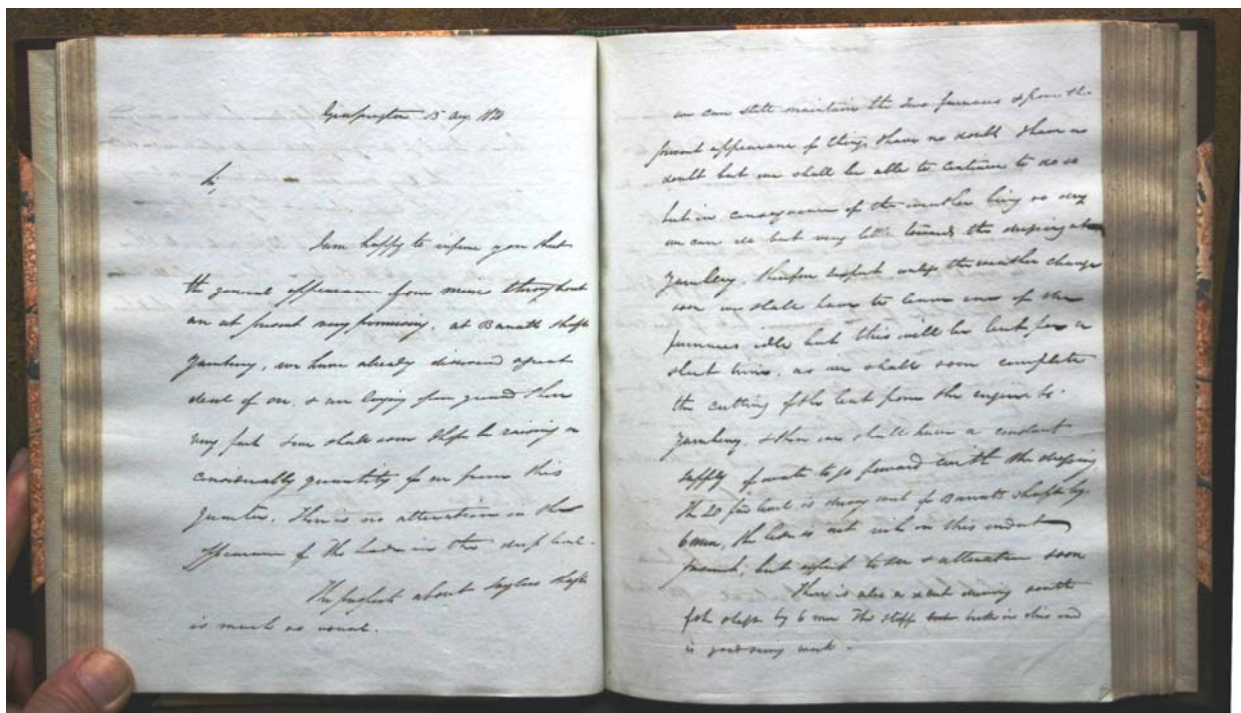 Grassington 15 Aug 1820
Sir,
I am happy to inform you that
the general appearance from mines throughout
are at present very promising, at Barratts shaft
Yarnbury, we have already discovered a great
deal of ore, & are laying open ground there
very fast & we shall soon I hope be raising a
considerable quantity of ore from this
quarter. There is no alteration in the
appearance of the Lode in the deep level.
The prospects about Taylors shaft
is much as usual.
we can still maintain the two furnaces & from the
present appearance of things I have no doubt I have no
doubt but we shall be able to continue to do so
but in consequence of the weather being so dry
we can do but very little towards the dressing at
Yarnbury. I therefore expect unless the weather change
soon we shall have to leave one of the
furnaces idle but this will be but for a
short time, as we shall soon complete
the cutting of the leat from the engine to
Yarnbury, & then we shall have a constant
supply of water to go forward with the dressing
The 20 fm level is driving west of Barratts shaft by
6 men, the lode is not rich in this end at
present, but expect to see a alteration soon
There is also a x cut driving south
of the shaft by 6 men The stuff broke in this end
is good saving work.